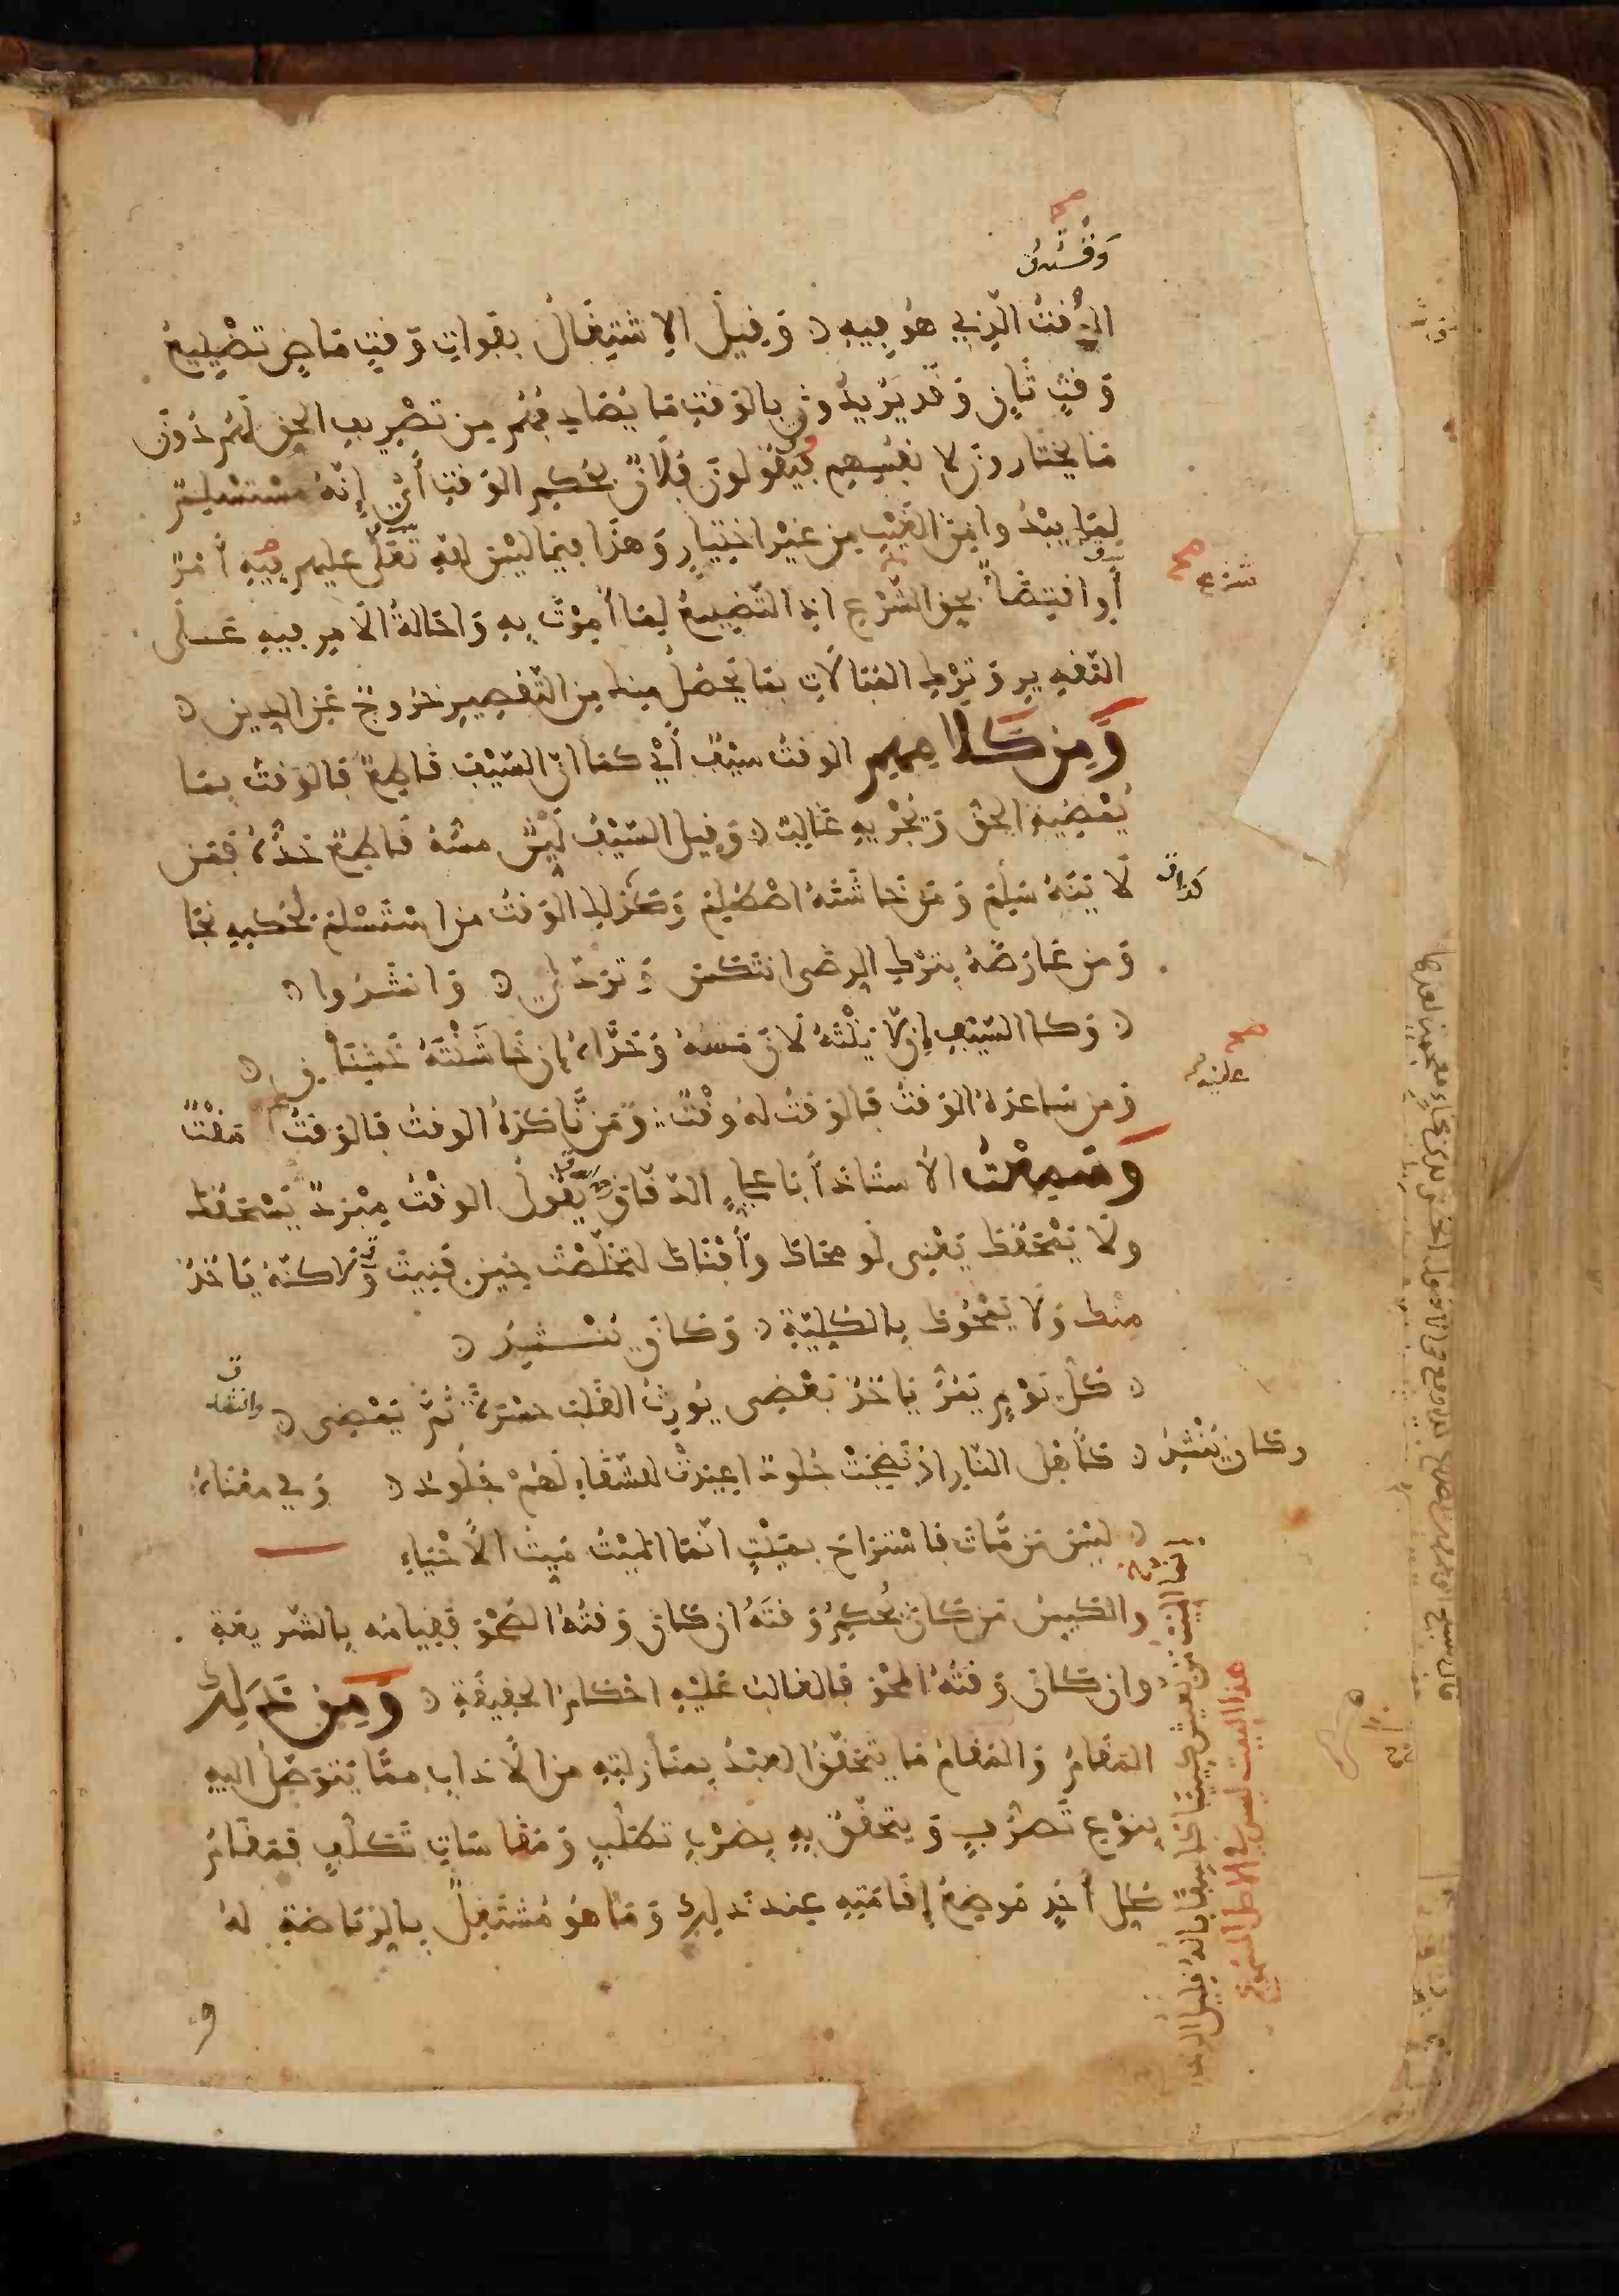 وقته
الوقت الذي هو فيه وقيل الاشتغال بفوات وقت ماض تضييع
وقت ثان وقد يريدون بالوقت ما يصادفهم من تصريف الحق لهم دون
ما يختارون لانفسهم فيقولون فلان بحكم الوقت أي إنه مستسلم
لما يبدوا من الغيب من غير اختيار وهذا فيما ليس لله تعلى عليهم فيه أمر
أو اقتضاء بحق الشرع اذ التضييع لما أمرت به واحالة الامر فيه على
التقدير وترك المبالات بما يحصل منك من التقصير خروج عن الدين
ومن كلامهم الوقت سيف أي كما ان السيف قاطع فالوقت بما
يمضيه الحق ويجريه غالب وقيل السيف لين مسه قاطع حده فمن
لاينه سلم ومن خاشنه اصطلم وكذلك الوقت من استسلم لحكمه نجا
ومن عارضه بترك الرضى انتكس وتردى وانشدوا
وكالسيف إن لاينته لان مسه وحداه إن خاشنته خشنان
ومن ساعده الوقت فالوقت له وقت ومن ناكده الوقت فالوقت مقت
وسمعت الأستاذ أبا علي الدقاق يقول الوقت مبرد يسحقك
ولا يمحقك يعنى لو محاك وأفناك لتخلصت حين فنيت ولاكنه ياخذ
منك ولا يمحوك بالكلية وكان ينشد
كل يوم يمر ياخذ بعضى يورث القلب حسرة ثم يمضى
وكان ينشد كأهل النار اذ نضجت جلود اعيدت للشقاء لهم جلود وفي معناه
ليس من مات فاستراح بميت انما الميت ميت الأحياء
والكيس من كان بحكم وقته ان كان وقته الصحو فقيامه بالشريعة
وان كان وقته المحو فالغالب عليه احكام الحقيقة ومن ذلك
المقام والمقام ما يتحقق العبد بمنازلته من الأداب مما يتوصل اليه
بنوع تصرف ويتحقق به بضرب تطلب ومقاسات تكلف فمقام
كل أحد موضع إقامته عند ذلك وما هو مشتغل بالرياضة له
صح
شرع صح
كذا
عليه صح
وانشد
انما الميت من يعيش كئيبا كاسفا باله قليل الرجاء
هذا البيت ليس في الاصل المنسوخ
9